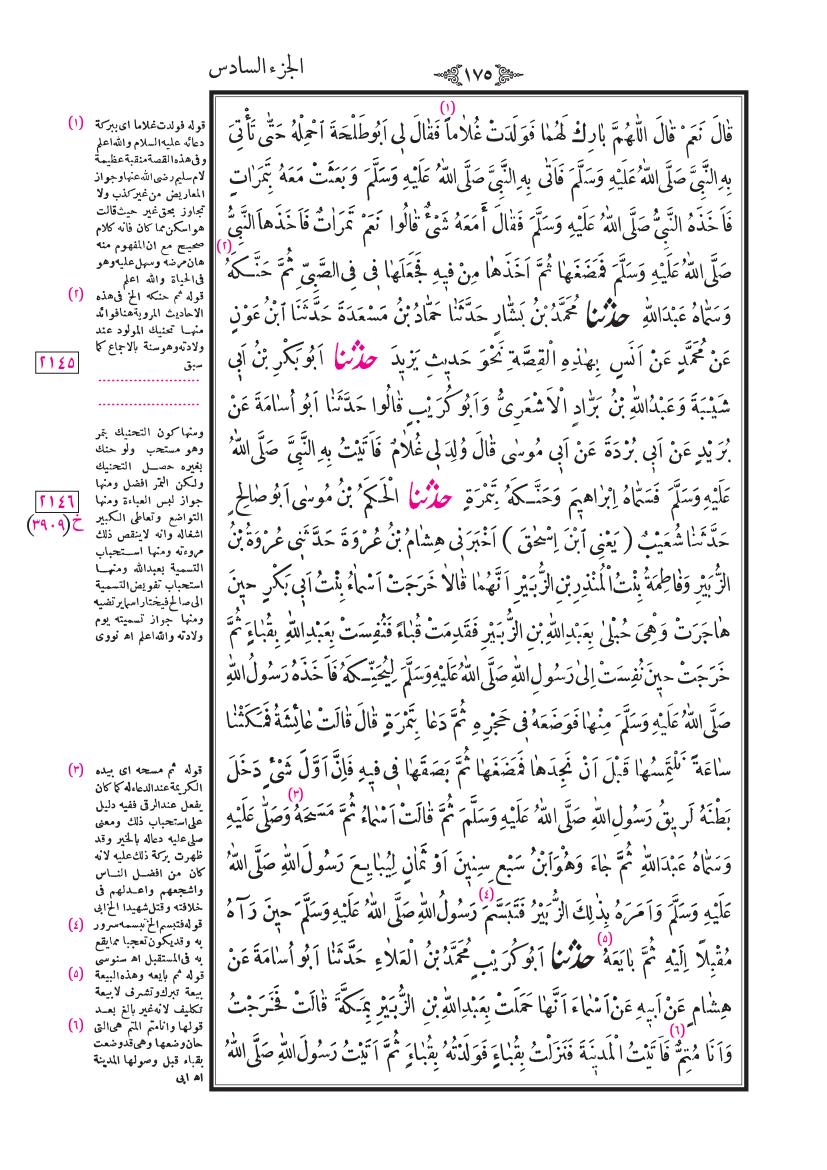 ١٧٥
الجزء السادس
قَالَ نَعَمْ قَالَ اللّٰهُمَّ بَارِكْ لَهُمَا فَوَلَدَتْ غُلَاماً (١) فَقَالَ لِي اَبُو طَلْحَةَ احْمِلْهُ حَتّٰى تَأْتِىَ
بِهِ النَّبِىَّ صَلَّى اللّٰهُ عَلَيْهِ وَسَلَّمَ فَاَتٰى بِهِ النَّبِىَّ صَلَّى اللّٰهُ عَلَيْهِ وَسَلَّمَ وَبَعَثَتْ مَعَهُ بِتَمَرَاتٍ
فَاَخَذَهُ النَّبِىُّ صَلَّى اللّٰهُ عَلَيْهِ وَسَلَّمَ فَقَالَ أَمَعَهُ شَىْءٌ قَالُوا نَعَمْ تَمَرَاتٌ فَاَخَذَهَا النَّبِىُّ
صَلَّى اللّٰهُ عَلَيْهِ وَسَلَّمَ فَمَضَغَهَا ثُمَّ اَخَذَهَا مِنْ فِيهِ فَجَعَلَهَا فِى فِى الصَّبِىِّ ثُمَّ حَنَّكَهُ (٢)
وَسَمَّاهُ عَبْدَاللّٰهِ حدّثنا مُحَمَّدُ بْنُ بَشَّارٍ حَدَّثَنَا حَمَّادُ بْنُ مَسْعَدَةَ حَدَّثَنَا ابْنُ عَوْنٍ
عَنْ مُحَمَّدٍ عَنْ اَنَسٍ بِهٰذِهِ الْقِصَّةِ نَحْوَ حَدِيثِ يَزِيدَ حدّثنا اَبُو بَكْرِ بْنُ اَبِى
شَيْبَةَ وَعَبْدُاللّٰهِ بْنُ بَرَّادٍ الْاَشْعَرِىُّ وَاَبُو كُرَيْبٍ قَالُوا حَدَّثَنَا اَبُو اُسَامَةَ عَنْ
بُرَيْدٍ عَنْ اَبِى بُرْدَةَ عَنْ اَبِى مُوسٰى قَالَ وُلِدَ لِى غُلَامٌ فَاَتَيْتُ بِهِ النَّبِىَّ صَلَّى اللّٰهُ
عَلَيْهِ وَسَلَّمَ فَسَمَّاهُ اِبْرَاهِيمَ وَحَنَّكَهُ بِتَمْرَةٍ حدّثنا الْحَكَمُ بْنُ مُوسٰى اَبُو صَالِحٍ
حَدَّثَنَا شُعَيْبٌ ( يَعْنِى ابْنَ اِسْحٰقَ ) اَخْبَرَنِى هِشَامُ بْنُ عُرْوَةَ حَدَّثَنِى عُرْوَةُ بْنُ
الزُّبَيْرِ وَفَاطِمَةُ بِنْتُ الْمُنْذِرِ بْنِ الزُّبَيْرِ اَنَّهُمَا قَالَا خَرَجَتْ اَسْمَاءُ بِنْتُ اَبِى بَكْرٍ حِينَ
هَاجَرَتْ وَهِىَ حُبْلٰى بِعَبْدِاللّٰهِ بْنِ الزُّبَيْرِ فَقَدِمَتْ قُبَاءً فَنُفِسَتْ بِعَبْدِاللّٰهِ بِقُبَاءٍ ثُمَّ
خَرَجَتْ حِينَ نُفِسَتْ اِلٰى رَسُولِ اللّٰهِ صَلَّى اللّٰهُ عَلَيْهِ وَسَلَّمَ لِيُحَنِّكَهُ فَاَخَذَهُ رَسُولُ اللّٰهِ
صَلَّى اللّٰهُ عَلَيْهِ وَسَلَّمَ مِنْهَا فَوَضَعَهُ فِى حَجْرِهِ ثُمَّ دَعَا بِتَمْرَةٍ قَالَ قَالَتْ عَائِشَةُ فَمَكَثْنَا
سَاعَةً نَلْتَمِسُهَا قَبْلَ اَنْ نَجِدَهَا فَمَضَغَهَا ثُمَّ بَصَقَهَا فِى فِيهِ فَاِنَّ اَوَّلَ شَىْءٍ دَخَلَ
بَطْنَهُ لَرِيقُ رَسُولِ اللّٰهِ صَلَّى اللّٰهُ عَلَيْهِ وَسَلَّمَ ثُمَّ قَالَتْ اَسْمَاءُ ثُمَّ مَسَحَهُ (٣) وَصَلّٰى عَلَيْهِ
وَسَمَّاهُ عَبْدَاللّٰهِ ثُمَّ جَاءَ وَهُوَ ابْنُ سَبْعِ سِنِينَ اَوْ ثَمَانٍ لِيُبَايِعَ رَسُولَ اللّٰهِ صَلَّى اللّٰهُ
عَلَيْهِ وَسَلَّمَ وَاَمَرَهُ بِذٰلِكَ الزُّبَيْرُ فَتَبَسَّمَ (٤) رَسُولُ اللّٰهِ صَلَّى اللّٰهُ عَلَيْهِ وَسَلَّمَ حِينَ رَآهُ
مُقْبِلًا اِلَيْهِ ثُمَّ بَايَعَهُ (٥) حدّثنا اَبُو كُرَيْبٍ مُحَمَّدُ بْنُ الْعَلَاءِ حَدَّثَنَا اَبُو اُسَامَةَ عَنْ
هِشَامٍ عَنْ اَبِيهِ عَنْ اَسْمَاءَ اَنَّهَا حَمَلَتْ بِعَبْدِاللّٰهِ بْنِ الزُّبَيْرِ بِمَكَّةَ قَالَتْ فَخَرَجْتُ
وَاَنَا مُتِمٌّ (٦) فَاَتَيْتُ الْمَدِينَةَ فَنَزَلْتُ بِقُبَاءٍ فَوَلَدْتُهُ بِقُبَاءٍ ثُمَّ اَتَيْتُ رَسُولَ اللّٰهِ صَلَّى اللّٰهُ
(١) قوله فولدت غلاما اى ببركة
دعائه عليه السلام والله اعلم
وفى هذه القصة منقبة عظيمة
لام سليم رضى الله عنها وجواز
المعاريض من غير كذب ولا
تجاوز بحق غير حيث قالت
هو اسكن مما كان فانه كلام
صحيح مع ان المفهوم منه
هان مرضه وسهل عليه وهو
فى الحياة والله اعلم
(٢) قوله ثم حنكه الخ فى هذه
الاحاديث المروية هنا فوائد
منها تحنيك المولود عند
ولادته وهو سنة بالاجماع كما
سبق
٢١٤٥
ومنها كون التحنيك بتمر
وهو مستحب ولو حنك
بغيره حصل التحنيك
ولكن التمر افضل ومنها
جواز لبس العباءة ومنها
التواضع وتعاطى الكبير
اشغاله وانه لا ينقص ذلك
مروءته ومنها استحباب
التسمية بعبدالله ومنها
استحباب تفويض التسمية
الى صالح فيختار اسما يرتضيه
ومنها جواز تسميته يوم
ولادته والله اعلم اه نووى
٢١٤٦
خ (٣٩٠٩)
(٣) قوله ثم مسحه اى بيده
الكريمة عند الدعاء له كما كان
يفعل عند الرقى ففيه دليل
على استحباب ذلك ومعنى
صلى عليه دعا له بالخير وقد
ظهرت بركة ذلك عليه لانه
كان من افضل الناس
واشجعهم واعدلهم فى
خلافته وقتل شهيدا اه ابى
(٤) قوله فتبسم الخ تبسمه سرور
به وقد يكون تعجبا مما يقع
به فى المستقبل اه سنوسى
(٥) قوله ثم بايعه وهذه البيعة
بيعة تبرك وتشرف لا بيعة
تكليف لانه غير بالغ بعد
(٦) قولها وانا متم المتم هى التى
حان وضعها وهى قد وضعت
بقباء قبل وصولها المدينة
اه ابى